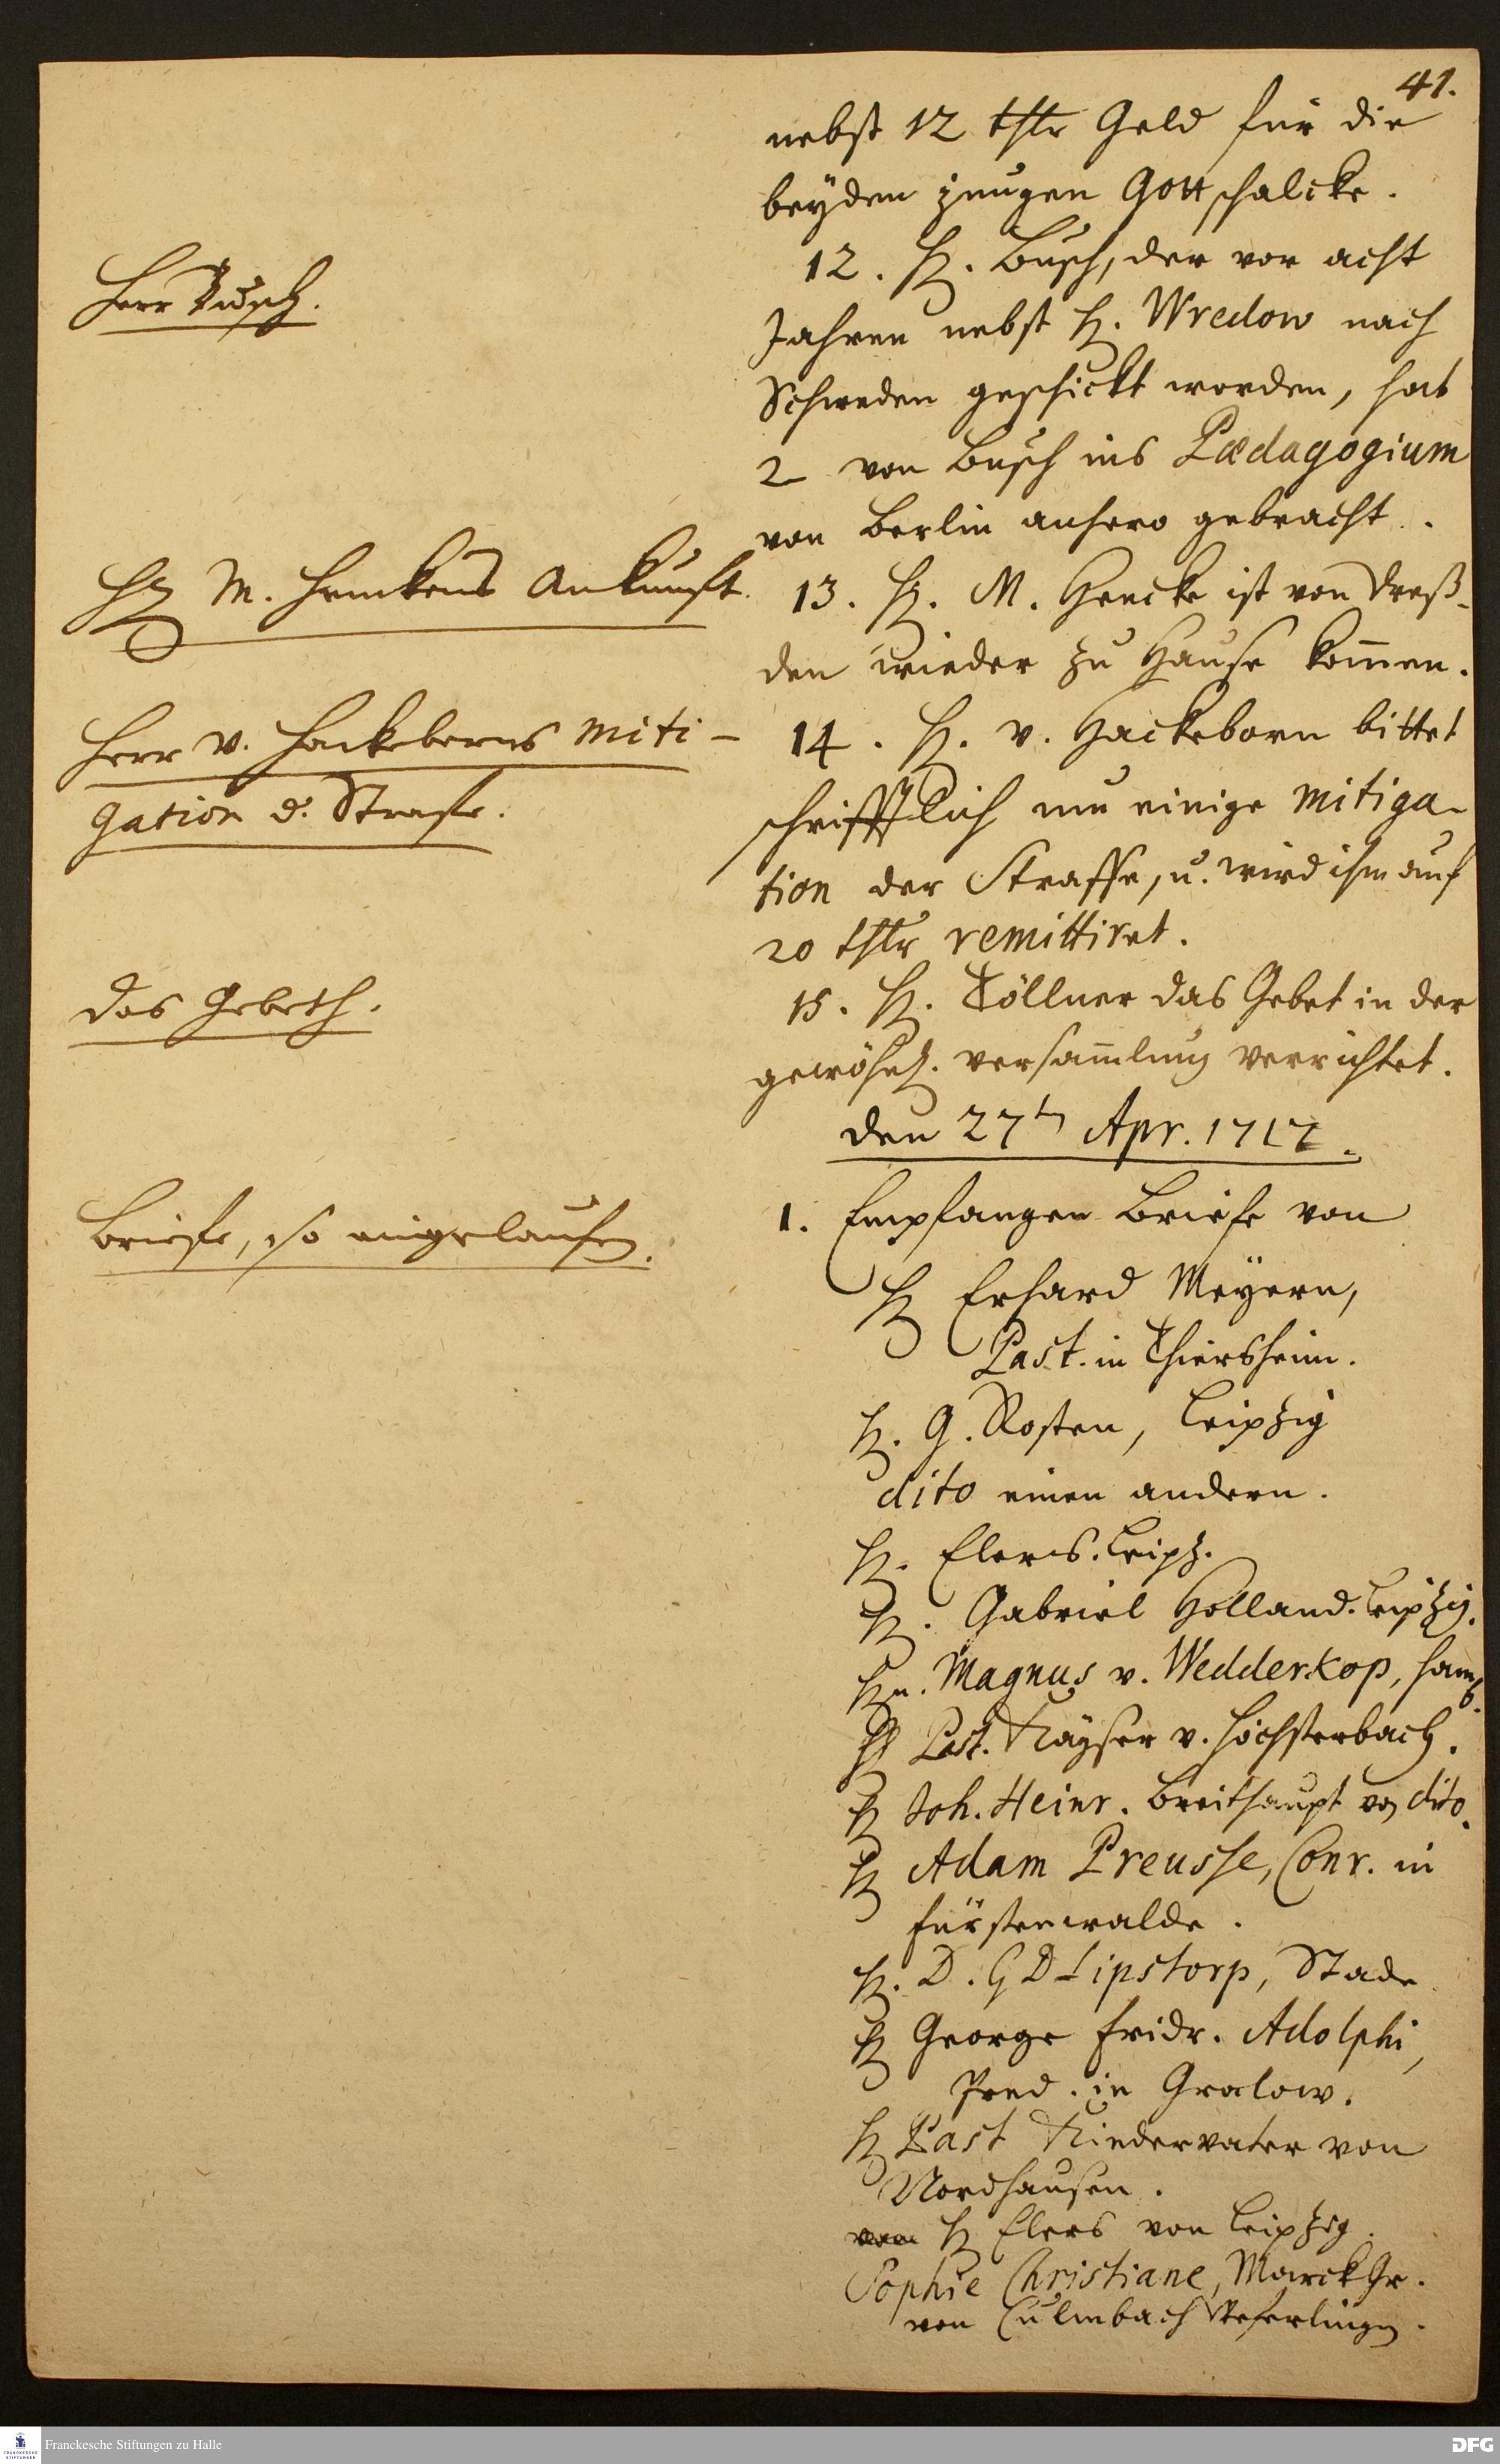 41.
nebst 12 thlr Geld für die
beyden jungen Gottschalcke.
Herr Busch.
12. H. Busch, der vor acht
Jahren nebst H. Wredow nach
Schweden geschickt worden, hat
2 von Busch ins Pædagogium
von Berlin anhero gebracht.
H M. Henkens Ankunft.
13. H. M. Hencke ist von Dreß-
den wieder zu Hause kom̄en.
Herr v. Hackeborns miti-
gation d. Strafe.
14. H. v. Hackeborn bittet
schrifftlich um einige mitiga-
tion der Straffe, u. wird ihm auf
20 thlr remittiret.
Das Gebeth.
15. H. Töllner das Gebet in der
gewöhnl. versam̄lung verrichtet.
den 27ten Apr. 1717.
Briefe, so eingelaufen.
1. Empfangen Briefe von
H Erhard Meyern,
Past. in Thiersheim.
H. G. Rosten, Leipzig
dito einen andern.
H. Elers. Leipz.
H. Gabriel Holland. Leipzig.
Hn. Magnus v. Wedderkop, Hamb.
H Past. Kayser v. Höchsterbach.
H Joh. Heinr. Breithaupt von dito.
H Adam Preusse, Conr. in
Fürstenwalde.
H. D. G D Lipstorp, Stade
H George Fridr. Adolphi,
Pred. in Gralow.
H Past Kindervater von
Nordhausen.
von H Elers von Leipzig.
Sophie Christiane, MarckGr.
von Culmbach Weferlingen.
Franckesche Stiftungen zu Halle
DFG